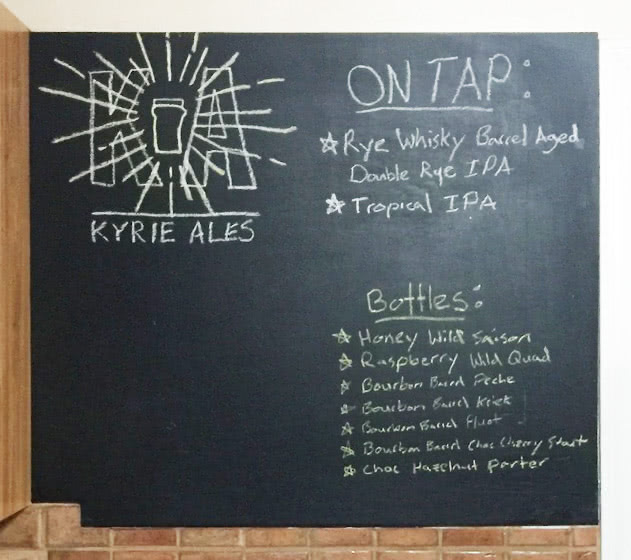 KYRIE ALES
ON TAP:
Rye Whisky Barrel Aged
Double Rye IPA
Tropical IPA
Bottles:
Honey Wild Saison
Raspberry Wild Quad
Bourbon Barrel Peche
Bourbon Barrel Kriek
Bourbon Barrel
Bourbon Barrel Choc Cherry Stout
Choc Hazelnut Porter